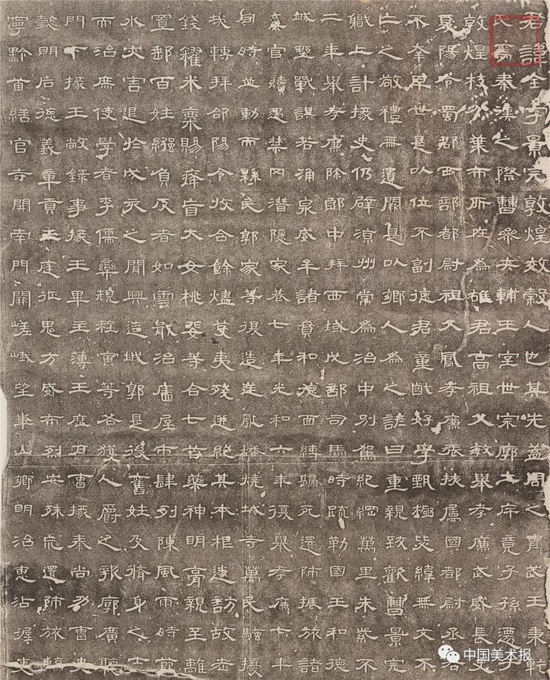 君諱全字景完敦煌效穀人也其先蓋周之胄武王秉乾
氏焉秦漢之際曹參夾輔王室世宗廓土斥竟子孫遷于
敦煌枝分葉布所在為雄君高祖父敏舉孝廉武威長史
夏陽令蜀郡西部都尉祖父鳳孝廉張掖屬國都尉丞右
不幸早世是以位不副德君童齔好學甄極毖緯無文不
亡之敬禮無遺闕是以鄉人為之諺曰重親致歡曹景完
職上計掾史仍辟涼州常為治中別駕紀綱萬里朱紫不
二年舉孝廉除郎中拜西域戊部司馬時疏勒國王和德
城野戰謀若涌泉威牟諸賁和德面縛歸死還師振旅諸
棄官續遇禁罔潛隱家巷七年光和六年復舉孝廉七年
同時並動而縣民郭家等復造逆亂燔燒城寺萬民騷擾
哉轉拜郃陽令收合餘燼芟夷殘迸絕其本根遂訪故老
錢糴米粟賜癃盲大女桃斐等合七首藥神明膏親至離
置郵百姓繈負反者如雲戢治廧屋市肆列陳風雨時節
水災害退於戊亥之間興造城郭是後舊姓及脩身之士
而治庶使學者李儒欒規程寅等各獲人爵之報廓廣聽
門下掾王敞錄事掾王畢主簿王歷戶曹掾秦尚功曹史
懿明后德義章貢王庭征鬼方威布烈安殊荒還師旅臨
寧黔首繕官寺開南門闕嵯峨望華山鄉明治惠沾渥吏
中国美术报